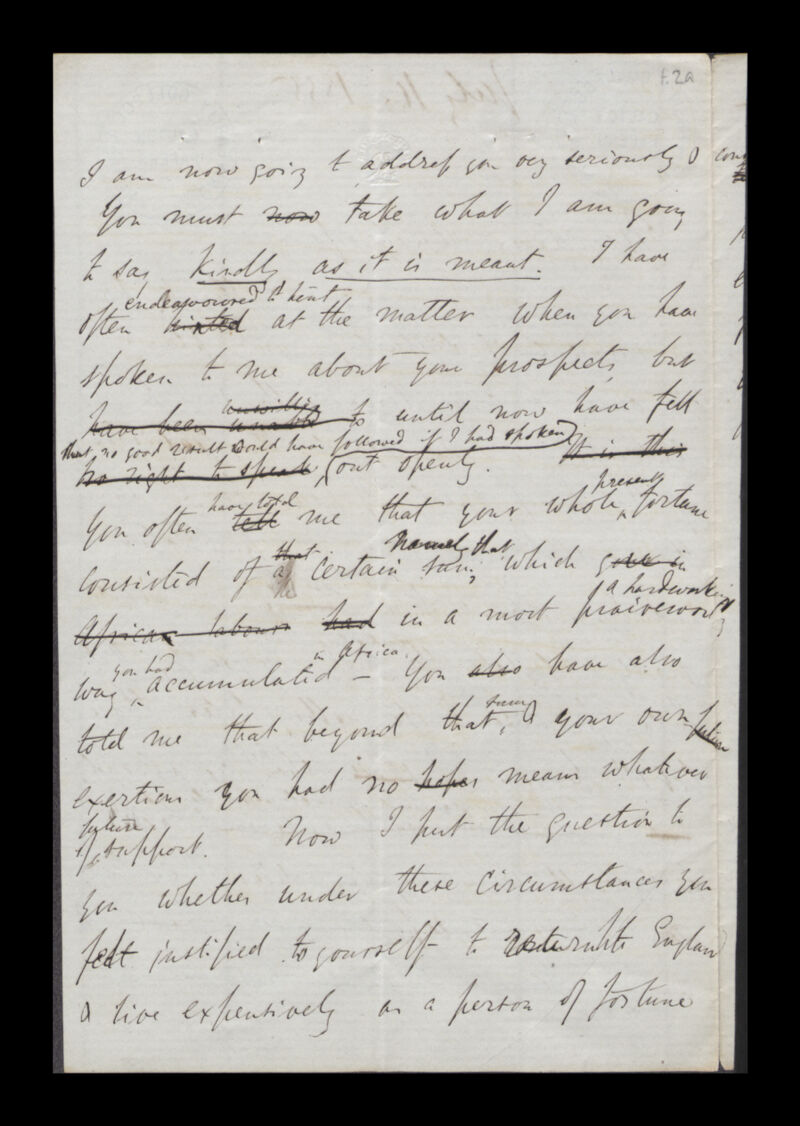 f.2a
I am now going to address you very seriously &
You must now take what I am going
to say kindly as it is meant. I have
endeavoured to hint
often hinted at the matter when you have
spoken to me about your prospects, but
unwilling
have been unable to until now have felt
that no good result would have followed if I had spoken
no right to speak out openly. It is this
have told present
You often tell me that your whole fortune
that namely that
consisted of a certain sum, which gone in
a hardworking &
African labour had in a most praiseworthy
you had in Africa
way accumulated – You also have also
sum
told me that beyond that, & your own future
exertions you had no hopes means whatever
future
of support. Now I put the question to
you whether under these circumstances you
felt justified to yourself to return to England
& live expensively as a person of fortune